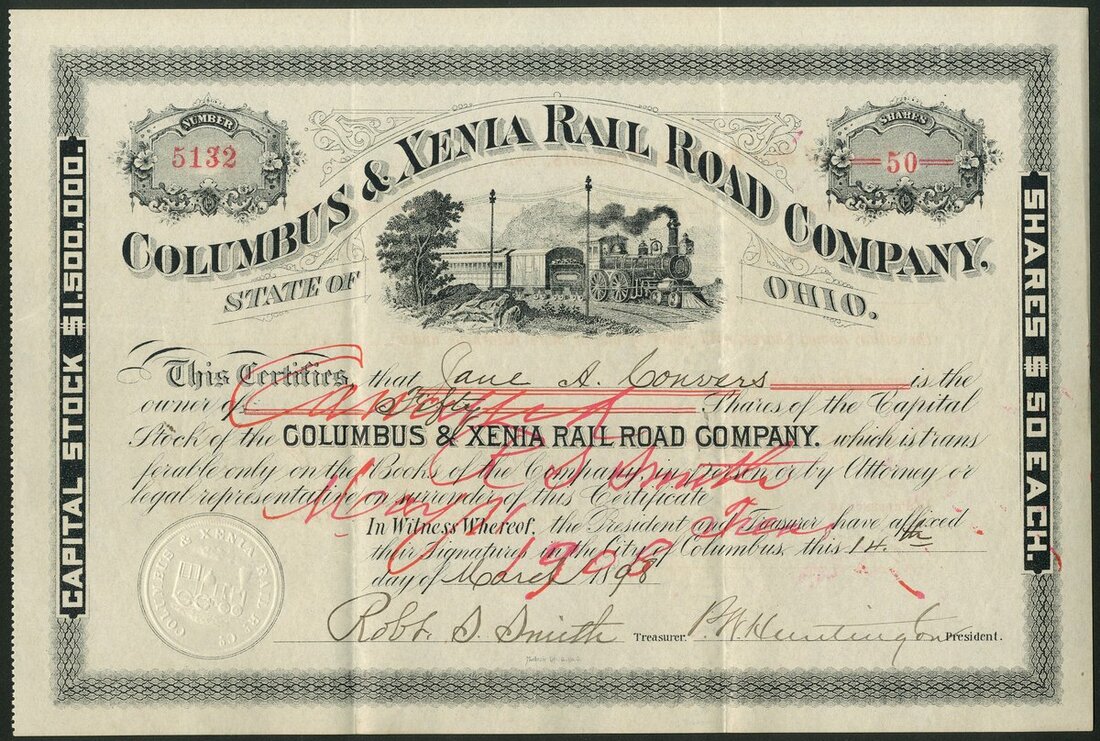 NUMBER
5132
SHARES
50
COLUMBUS & XENIA RAIL ROAD COMPANY.
STATE OF OHIO.
CAPITAL STOCK $1.500.000.
SHARES $50 EACH.
This Certifies, that Jane A. Convers is the
owner of Fifty Shares of the Capital
Stock of the COLUMBUS & XENIA RAIL ROAD COMPANY. which is trans
ferable only on the Books of the Company, in person or by Attorney or
legal representative on surrender of this Certificate
In Witness Whereof, the President and Treasurer have affixed
their Signatures in the City of Columbus, this 14th
day of March 1898
Cancelled
R S Smith
May
Treas
1908
COLUMBUS & XENIA RAIL RD CO
Robt. S. Smith Treasurer. P. W. Huntington President.